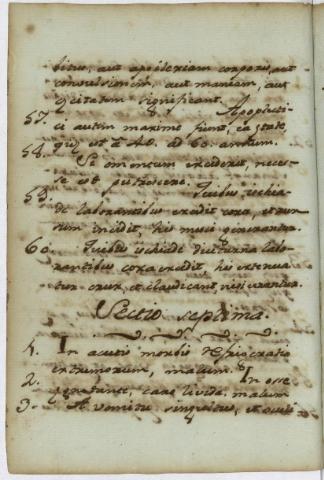 bitus, aut apoplexiam corporis, aut
convulsionem, aut maniam, aut
cæcitatem significant.
57. Apoplecti-
ci autem maxime fiunt, ea ætate,
quæ est a 40. ad 60. annum.
58. Si omentum exciderit, neces-
se est putrescere.
59. Quibus ischia-
de laborantibus excidit coxa, et rur-
sum incidit, his muci generantur.
60. Quibus ischiade diuturna labo-
rantibus coxa excidit, his extenua-
tur crux, et claudicant, nisi urantur.
Sectio septima.
1. In acutis morbis refrigeratio
extremorum, malum.
2. In osse
ægrotante, caro livida, malum
3. A vomitu singultus, et oculi